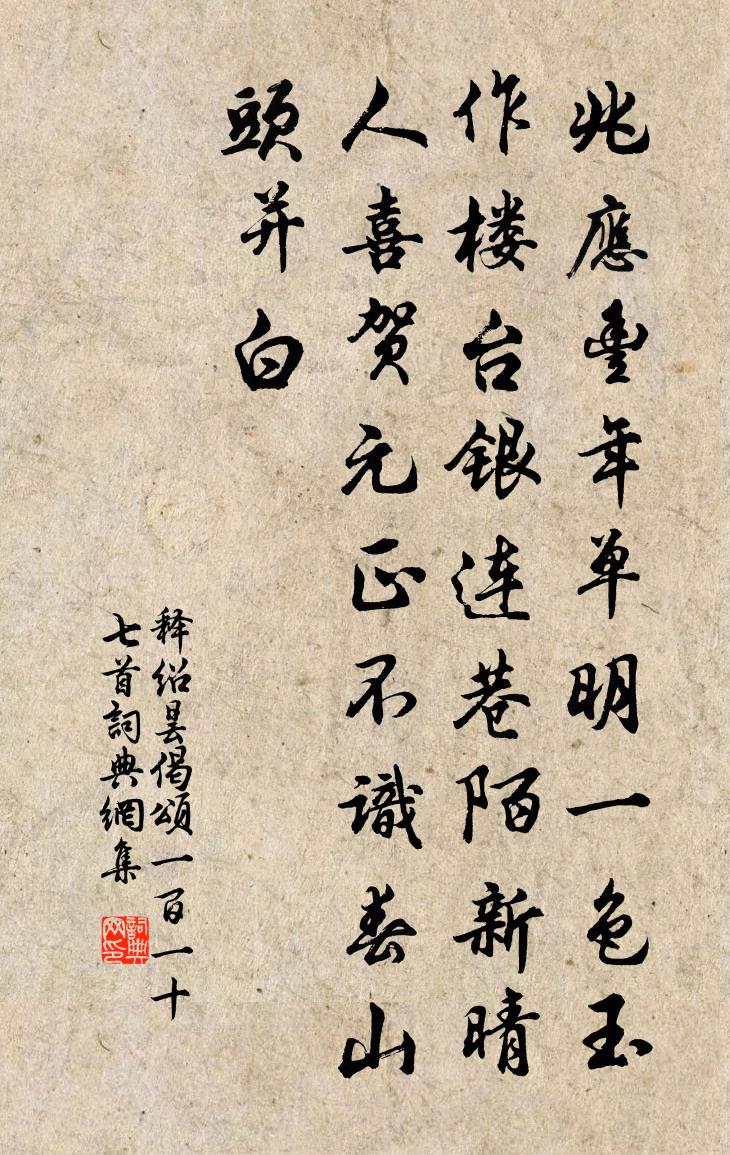 兆應豐年单明一色玉
作楼台銀连巷陌新晴
人喜贺元正不識春山
頭并白
释绍昙偈頌一百一十
七首詞典網集
詞典网印